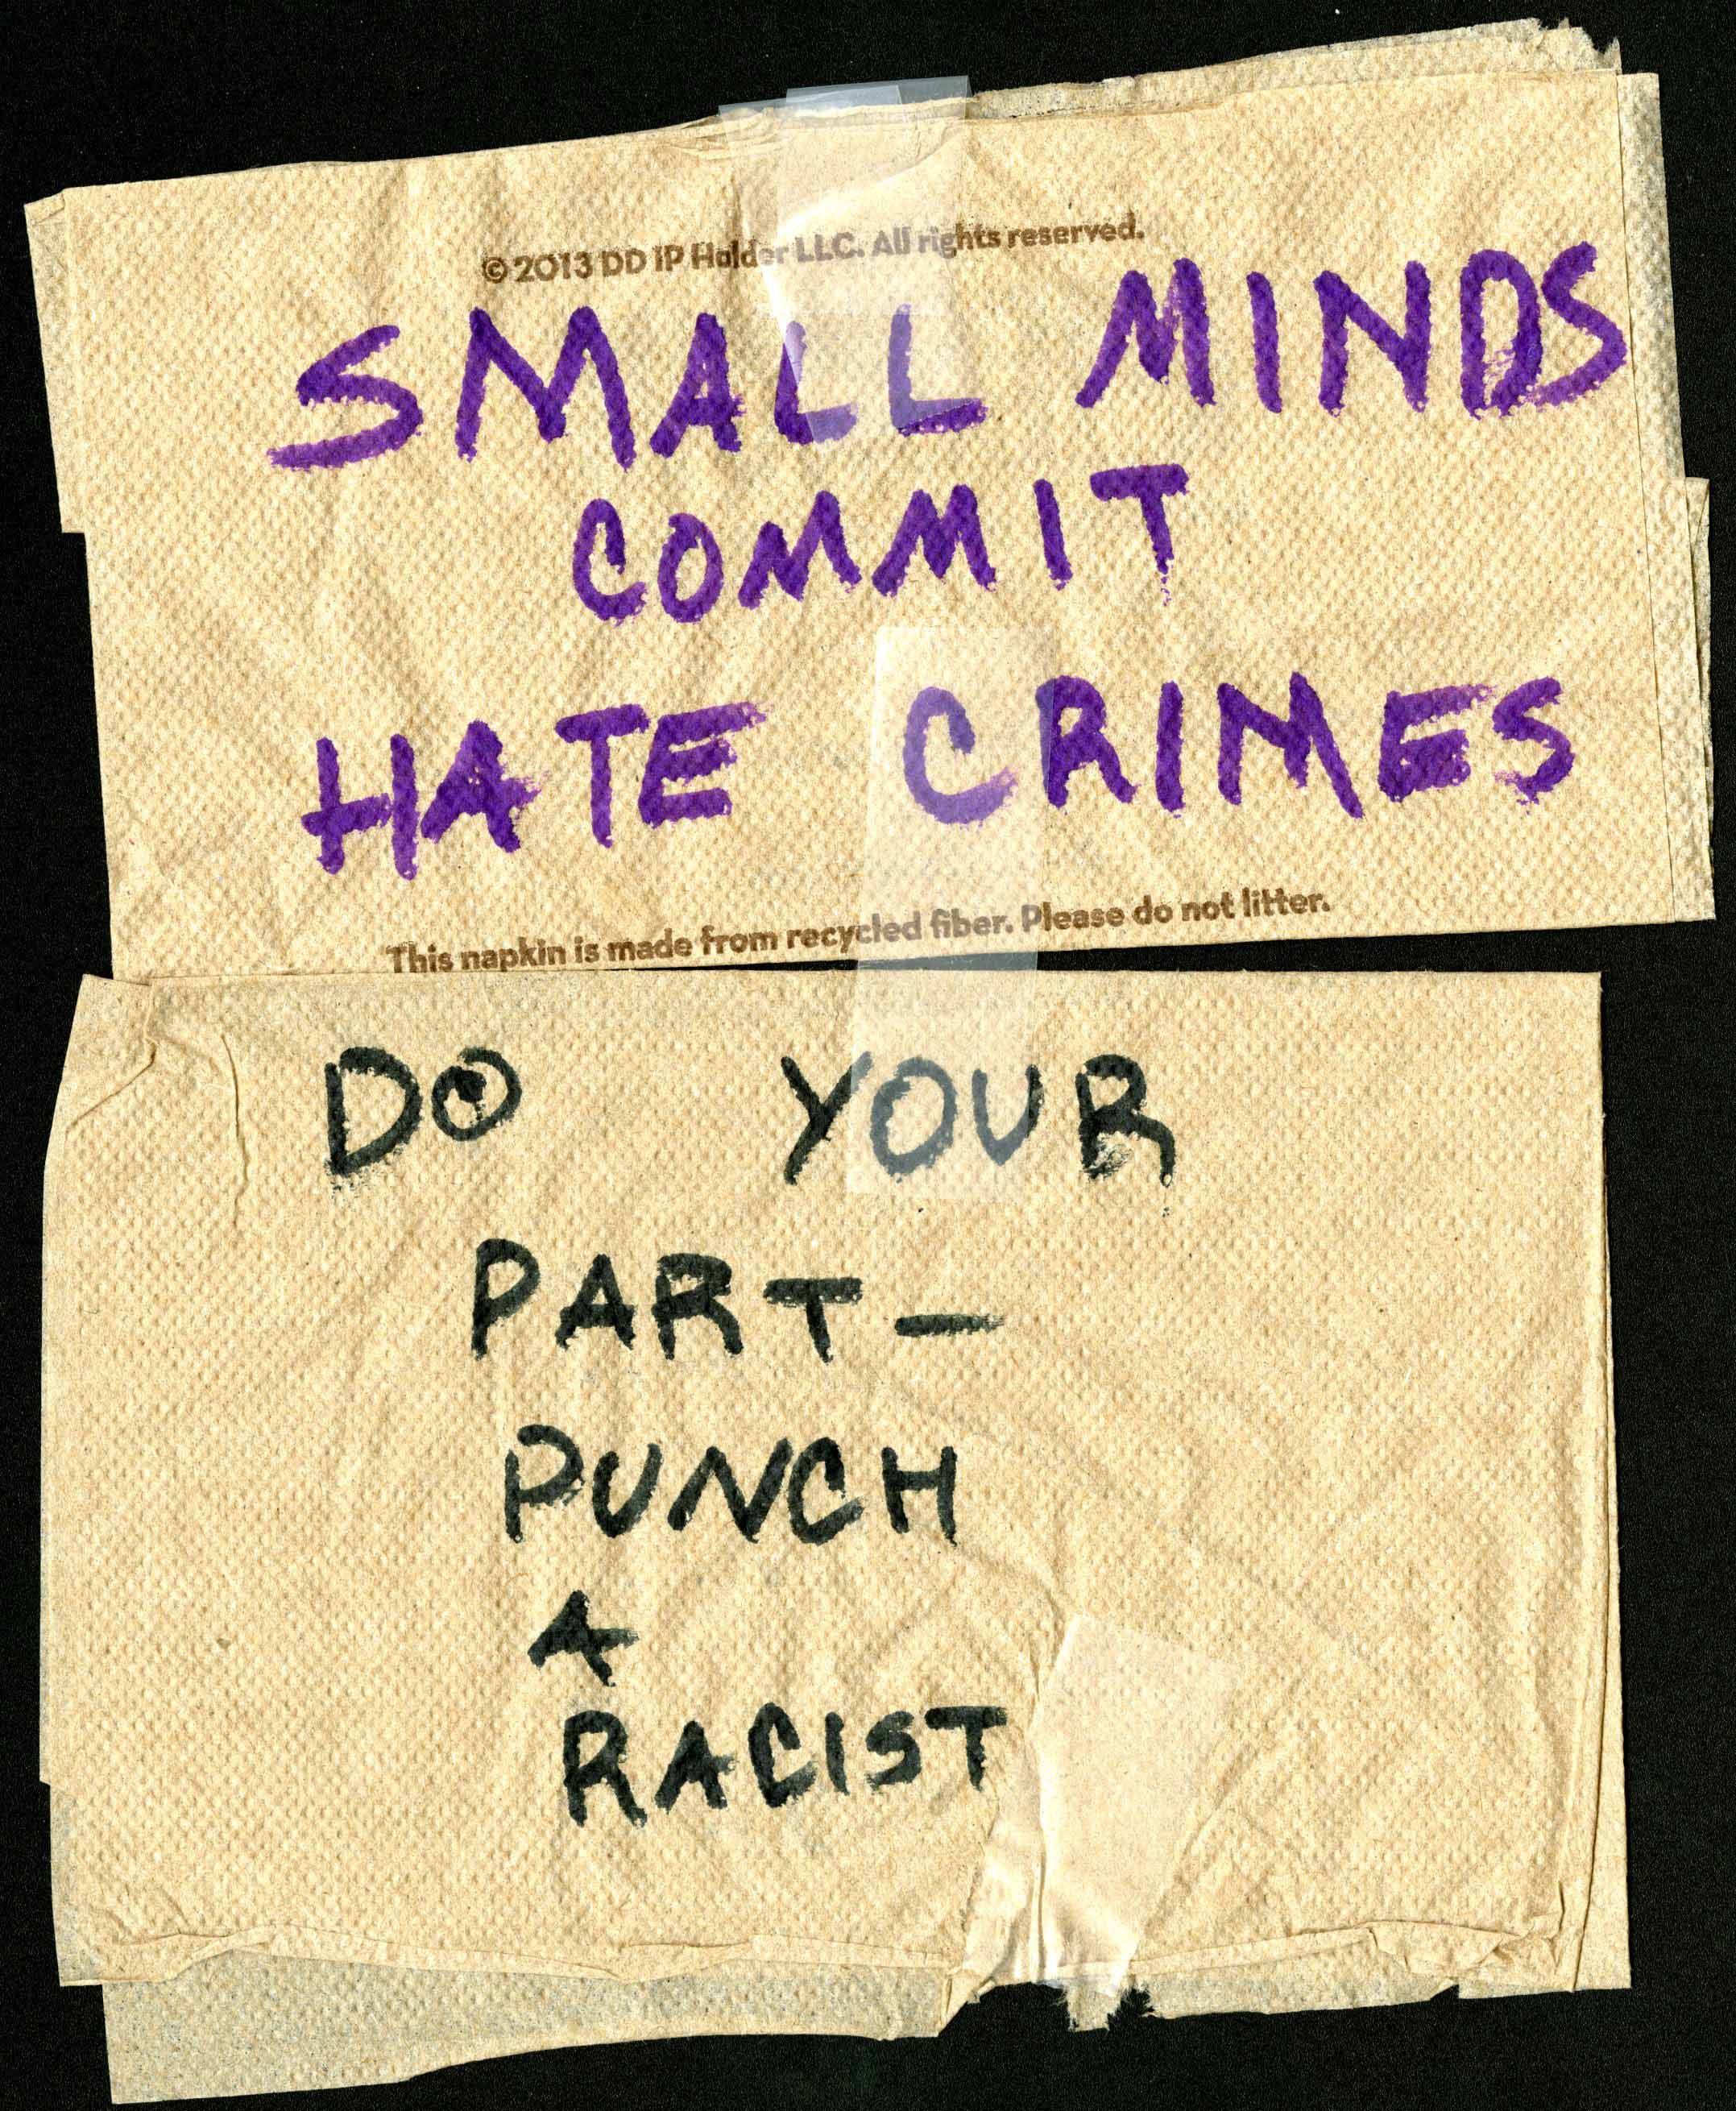 © 2013 DD IP Holder LLC. All rights reserved.
SMALL MINDS
COMMIT
HATE CRIMES
This napkin is made from recycled fiber. Please do not litter.
DO YOUR
PART-
PUNCH
A
RACIST